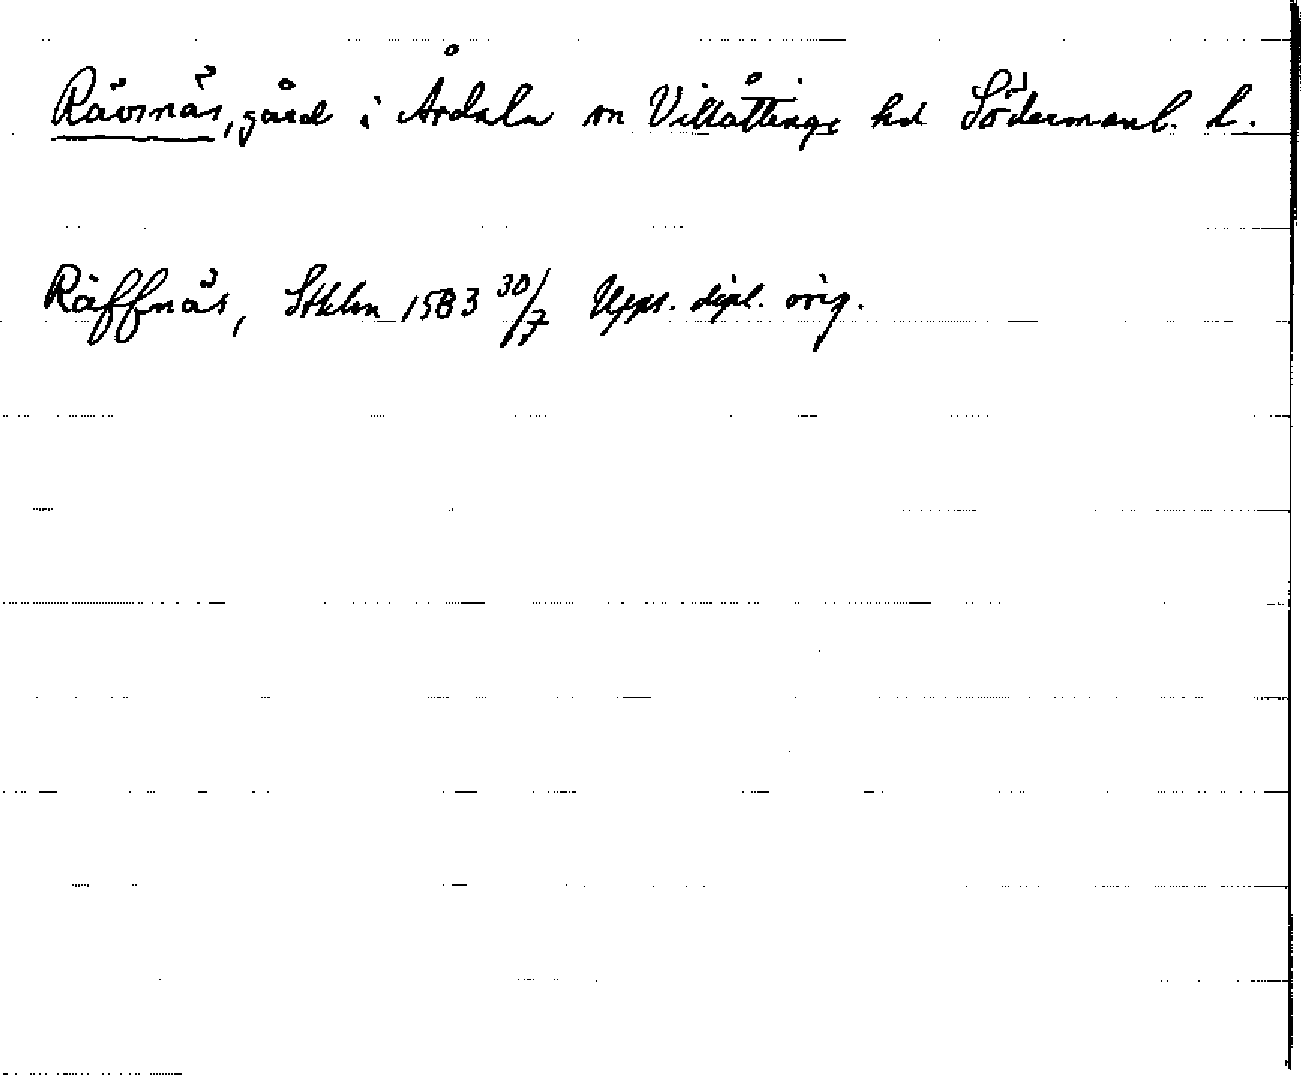 Rävsnäs, gård i Årdala sn Villåttinge hd Södermanl. l.
Räffnäs, Stklm 1583 30/7 Upps. dipl. orig.